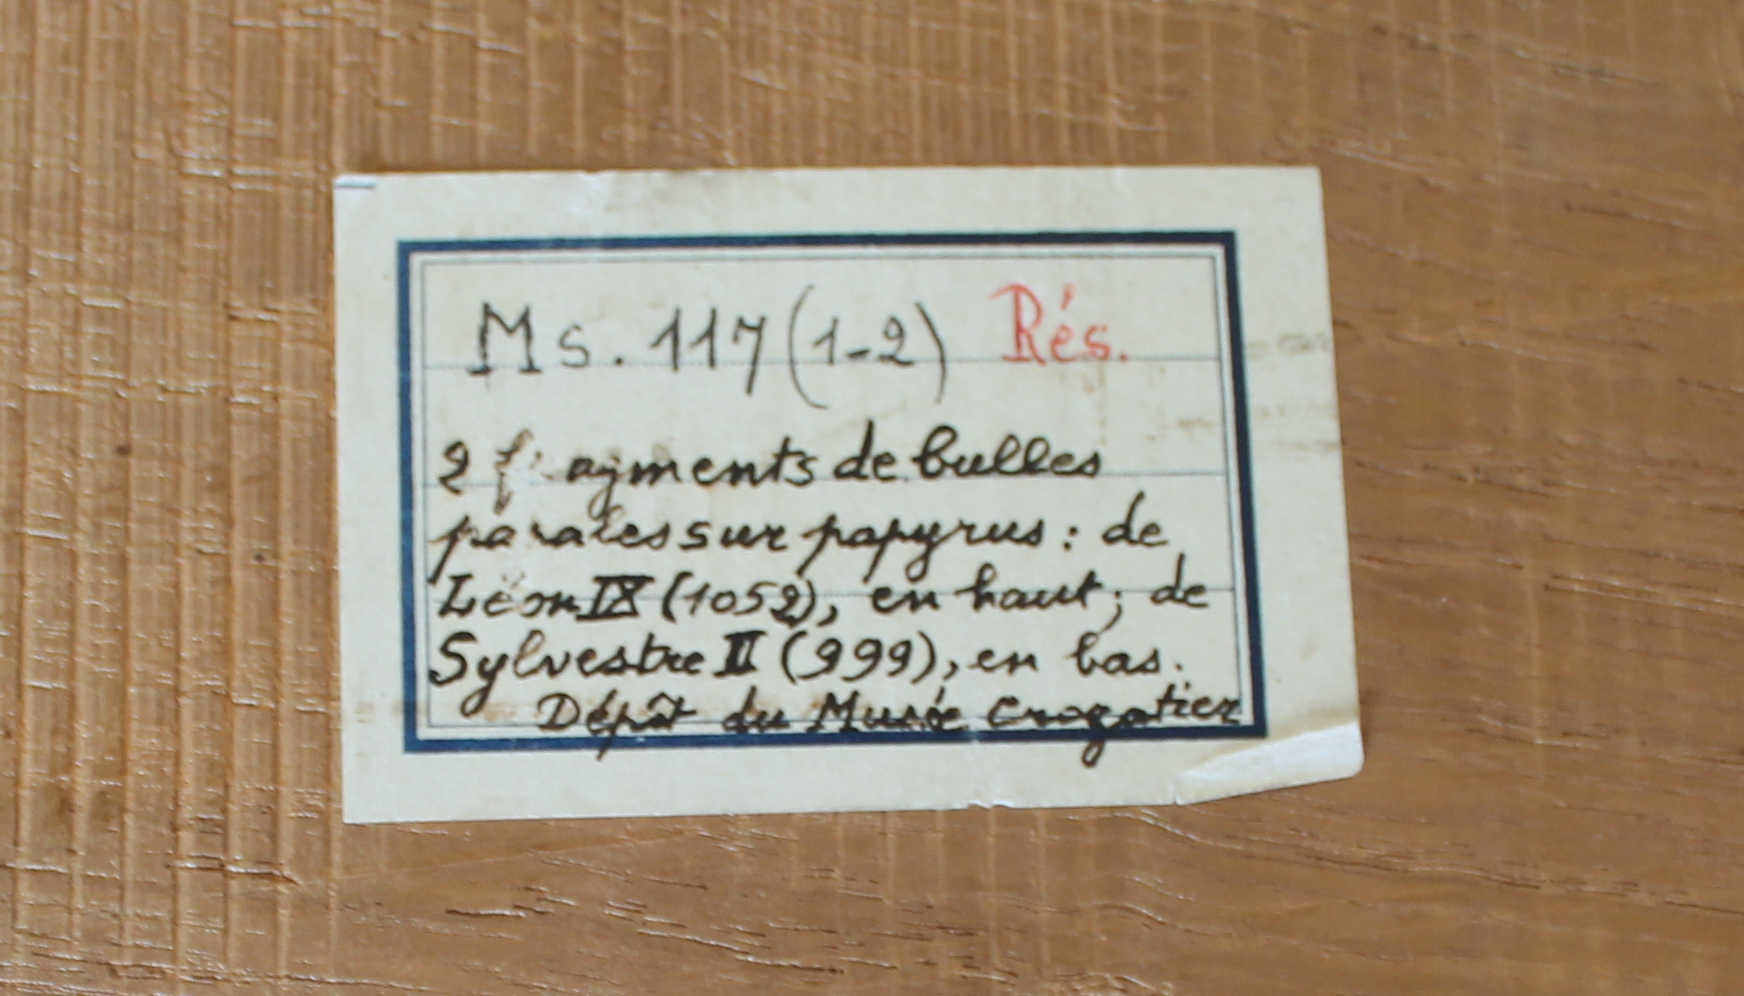 Ms. 117 (1-2) Rés.
2 fragments de bulles
papales sur papyrus : de
Léon IX (1052), en haut ; de
Sylvestre II (999), en bas.
Dépôt du Musée Crozatier